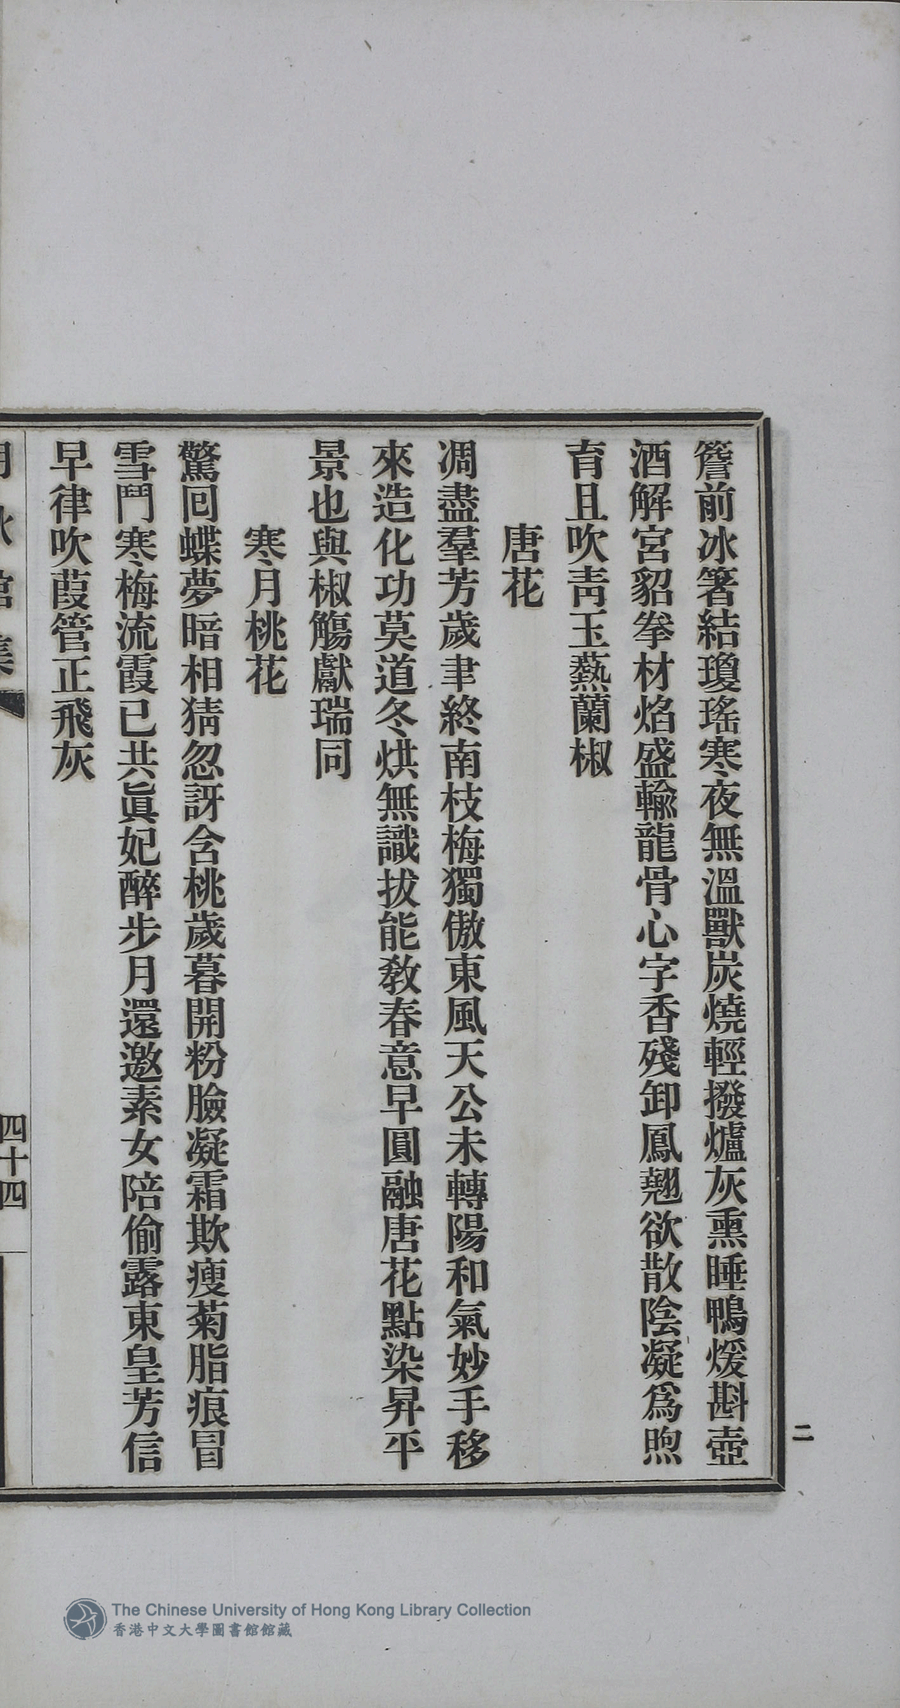 簷前冰箸結瓊瑤寒夜無溫獸炭燒輕撥爐灰熏睡鴨煖斟壺
酒解宮貂拳材焰盛輸龍骨心字香殘卸鳳翹欲散陰凝爲煦
育且吹靑玉爇蘭椒
唐花
凋盡羣芳歲聿終南枝梅獨傲東風天公未轉陽和氣妙手移
來造化功莫道冬烘無識拔能敎春意早圓融唐花點染昇平
景也與椒觴獻瑞同
寒月桃花
驚回蝶夢暗相猜忽訝含桃歲暮開粉臉凝霜欺瘦菊脂痕冒
雪鬥寒梅流霞已共眞妃醉步月還邀素女陪偷露東皇芳信
早律吹葭管正飛灰
四十四
二
The Chinese University of Hong Kong Library Collection
香港中文大學圖書館館藏